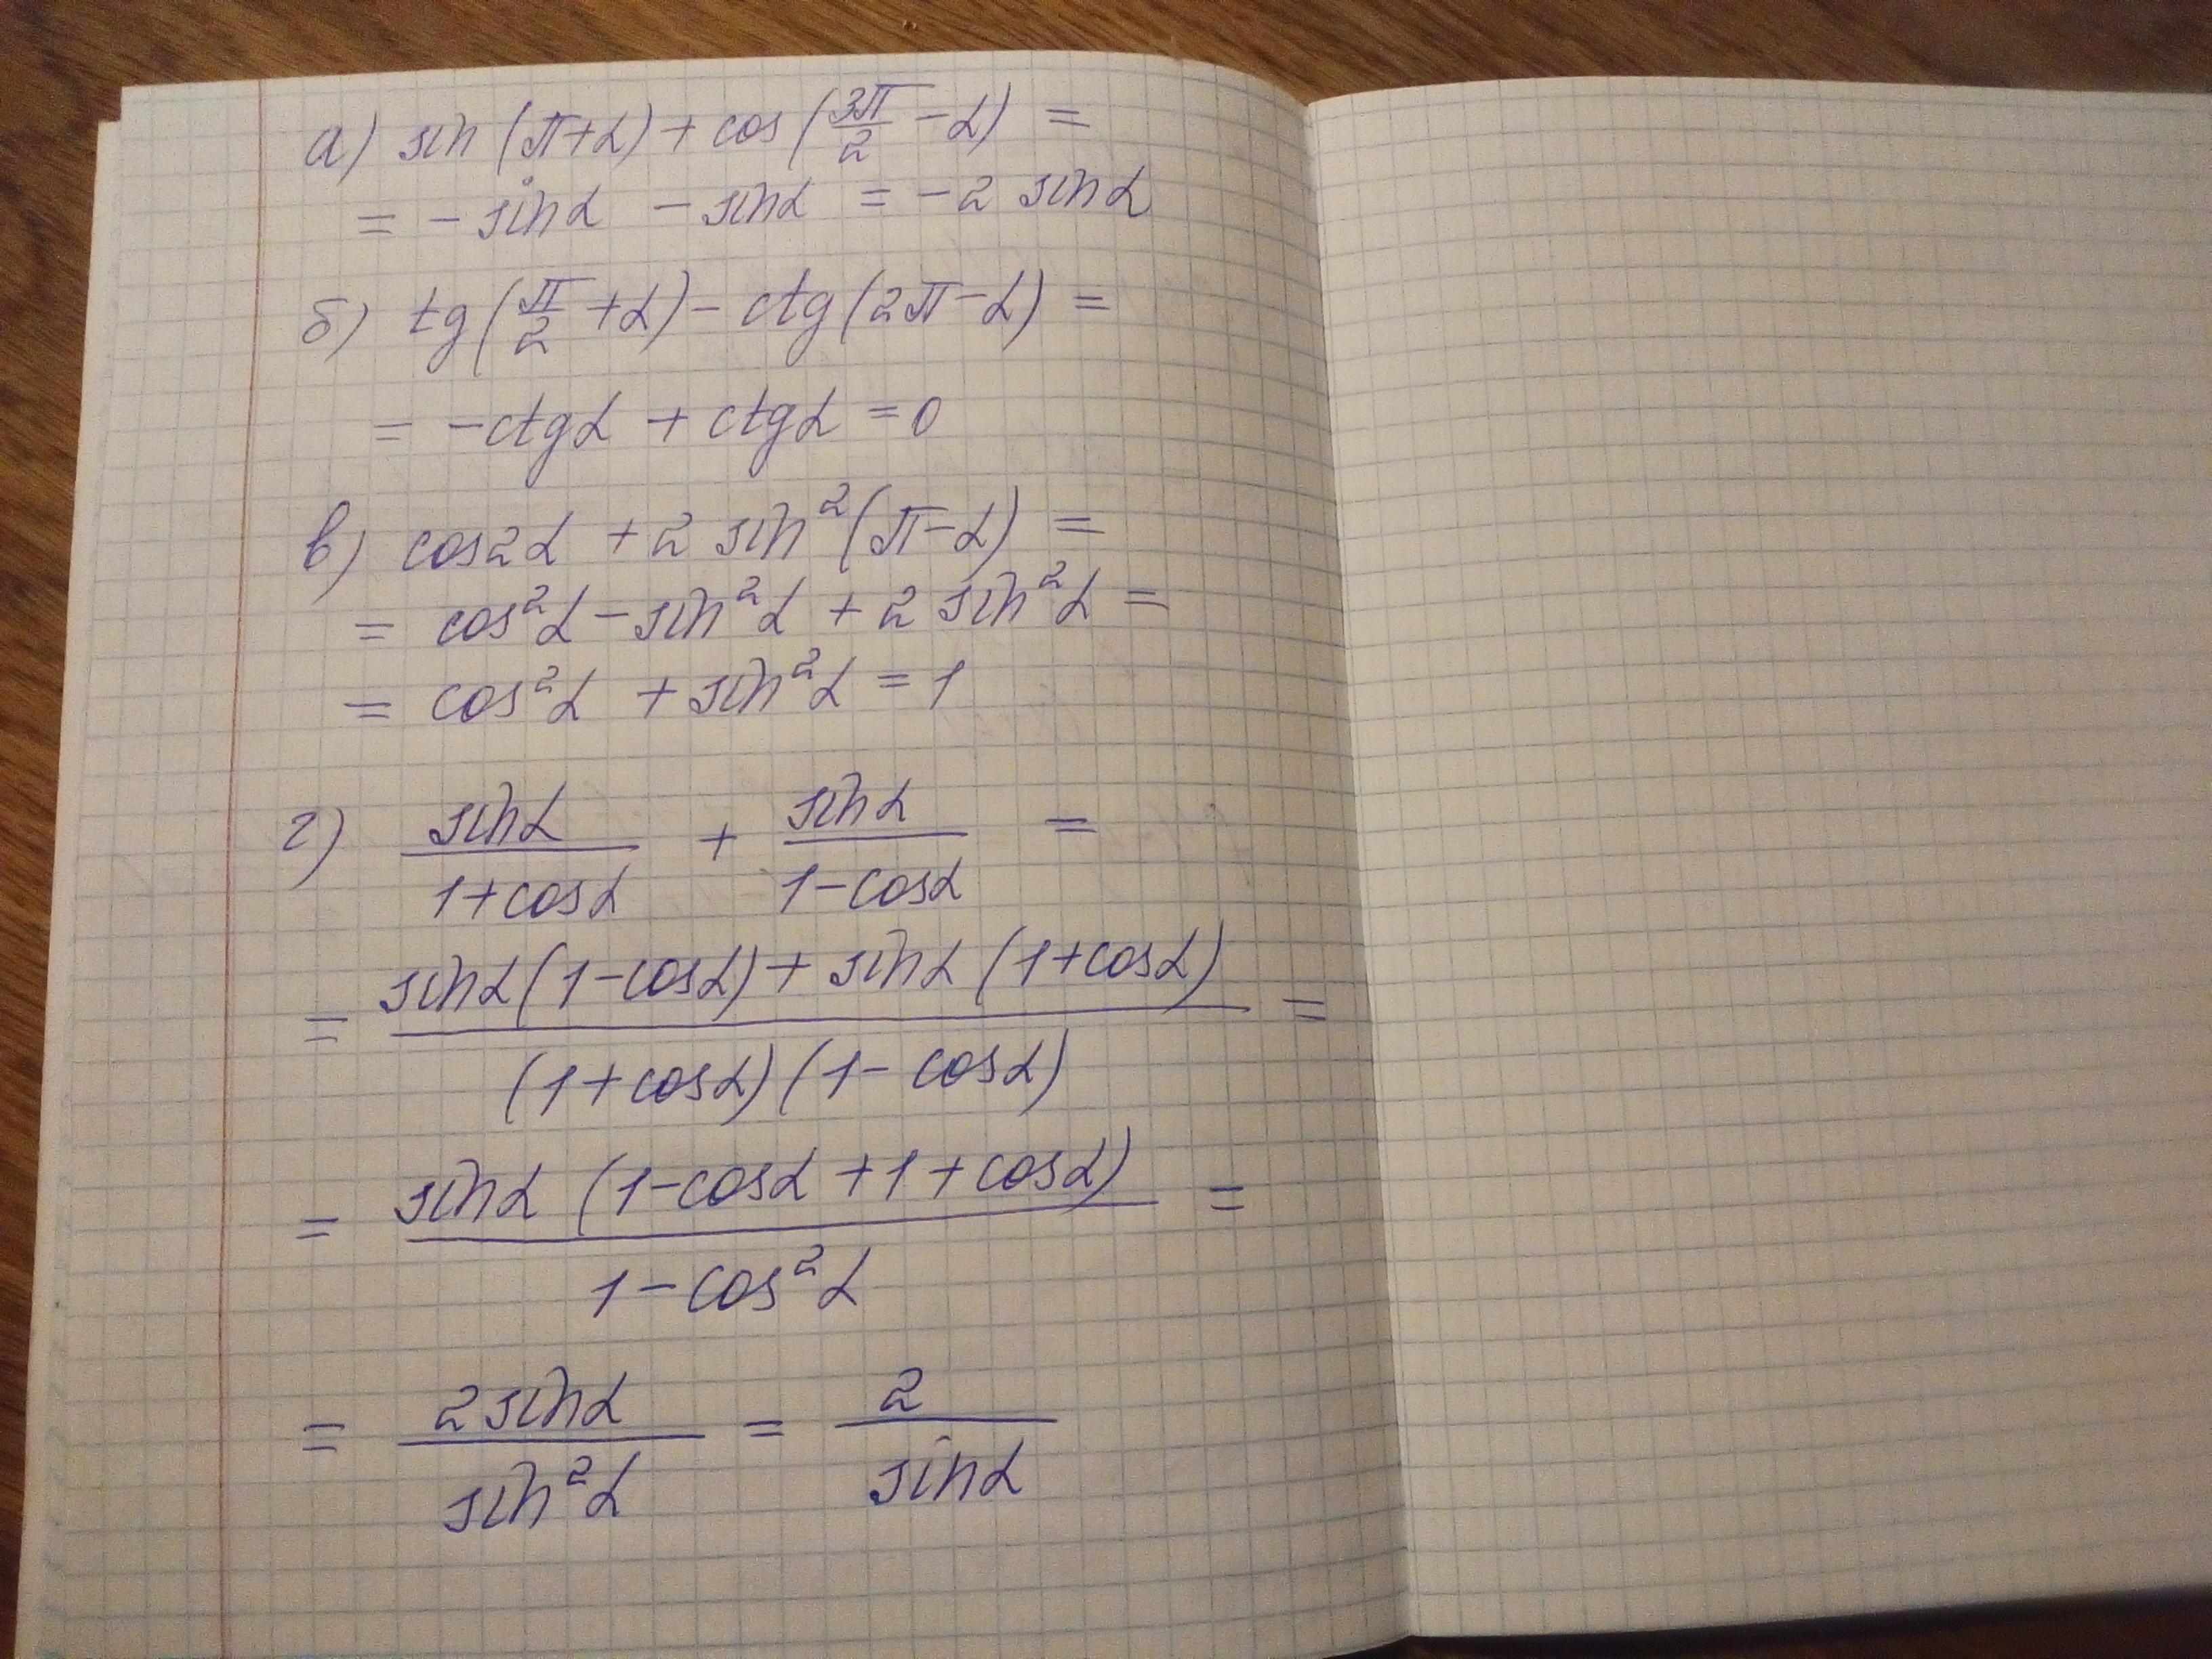 а) sin (π+α) + cos (3π/2 - α) =
= - sinα - sinα = -2 sinα
б) tg(π/2 + α) - ctg(2π-α) =
= -ctgα + ctgα = 0
в) cos2α + 2 sin²(π-α) =
= cos²α - sin²α + 2 sin²α =
= cos²α + sin²α = 1
г) sinα/(1+cosα) + sinα/(1-cosα) =
= (sinα(1-cosα) + sinα (1+cosα))/((1+cosα)(1-cosα)) =
= (sinα (1-cosα +1+cosα))/(1-cos²α) =
= 2sinα/sin²α = 2/sinα